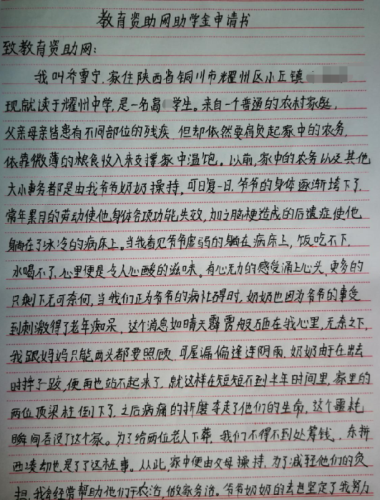 教育资助网助学金申请书
致教育资助网：
我叫乔雪宁，家住陕西省铜川市耀州区小丘镇
现就读于耀州中学，是一名高 学生。来自一个普通的农村家庭，
父亲母亲皆患有不同部位的残疾，但却依然要肩负起家中的农务，
依靠微薄的粮食收入来支撑家中温饱。以前，家中的农务以及其他
大小事务都是由我爷爷奶奶操持，可日复一日，爷爷的身体逐渐垮下了，
常年累月的劳动使他身体各项功能失效，加之脑梗造成的后遗症使他
躺在了冰冷的病床上。当我看见爷爷虚弱的躺在病床上，饭吃不下
水喝不了，心里便是令人心酸的滋味。有心无力的感受涌上心头，更多的
只剩下无可奈何，当我们正为爷爷的病忙碌时，奶奶也因为爷爷的事受
到刺激得了老年痴呆，这个消息如晴天霹雳般砸在我心里，无奈之下，
我跟妈妈只能两头都要照顾，可屋漏偏逢连阴雨，奶奶由于在出去
时摔了一跤，便再也站不起来了，就这样在短短不到半年时间里，家里的
两位顶梁柱倒下了，之后病痛的折磨夺走了他们的生命，这个噩耗
瞬间吞没了这个家。为了给两位老人下葬，我们不得不到处筹钱，东拼
西凑却也是了了这桩事。从此，家中便由父母操持，为了减轻他们的负
担，我会经常帮助他们干农活，做家务活。爷爷奶奶的去世坚定了我努力